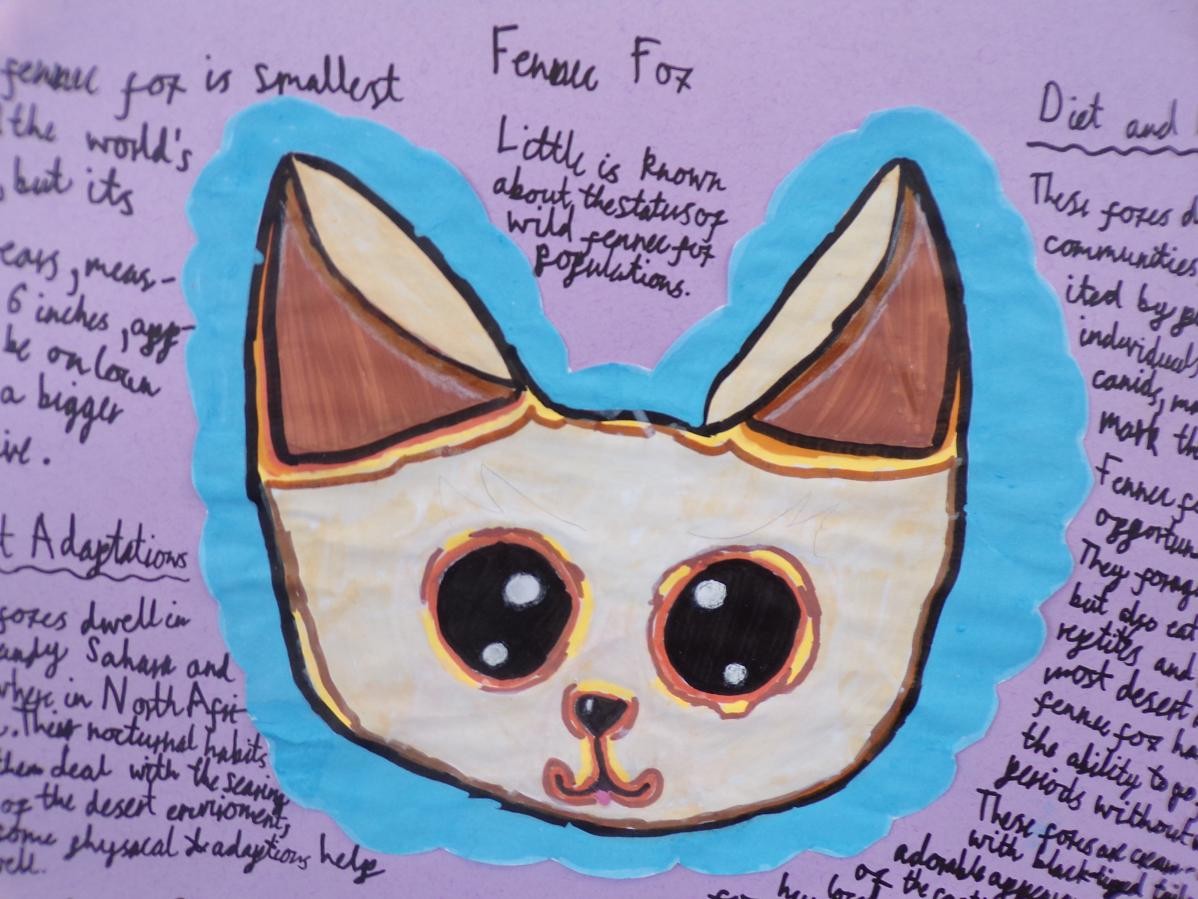 fennec fox is smallest
the world's
, but its
ears, meas-
6 inches, app-
be on loan
a bigger
ive.
t Adaptations
foxes dwell in
andy Sahara and
where in North Afri-
. Their nocturnal habits
them deal with the searing
of the desert envrioment,
some physacal & adaptions help
well.
Fennec Fox
Little is known
about the status of
wild fennec fox
populations.
Diet and
These foxes d
communities
ited by p
individuals
canids, m
mark th
Fennec f
opportun
They forag
but also eat
reptiles and
most desert
fennec fox ha
the ability to go
periods without
These foxes are cream-
with black-tipped tail
adorable appear
of the